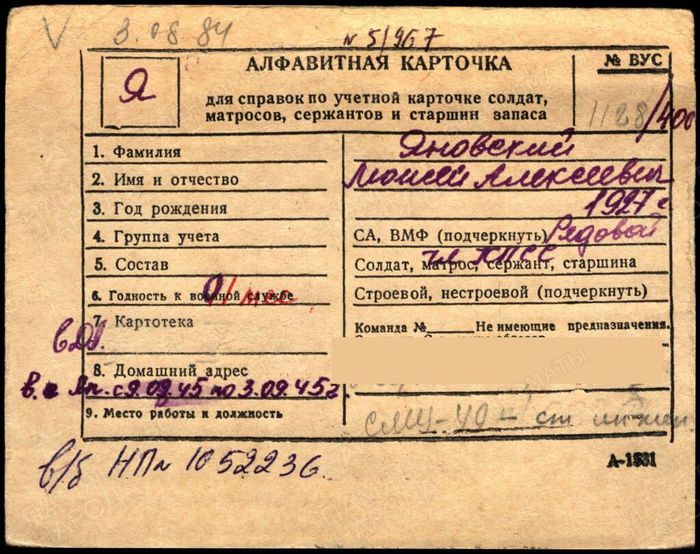 V 3.08.84
N 5/967
Я
АЛФАВИТНАЯ КАРТОЧКА
для справок по учетной карточке солдат,
матросов, сержантов и старшин запаса
№ ВУС
1128/400
1. Фамилия
Яновский
2. Имя и отчество
Моисей Алексеевич
3. Год рождения
1927 г
4. Группа учета
СА, ВМФ (подчеркнуть) Рядовой
5. Состав
чл КПСС
Солдат, матрос, сержант, старшина
6. Годность к военной службе
Строевой, нестроевой (подчеркнуть)
7. Картотека
Команда № Не имеющие предназначения.
8. Домашний адрес
в. с Яп. с 9.08.45 по 3.09.45 г.
9. Место работы и должность
СМУ-40 - ст инжен
в/б НП№ 1052236.
А-1331